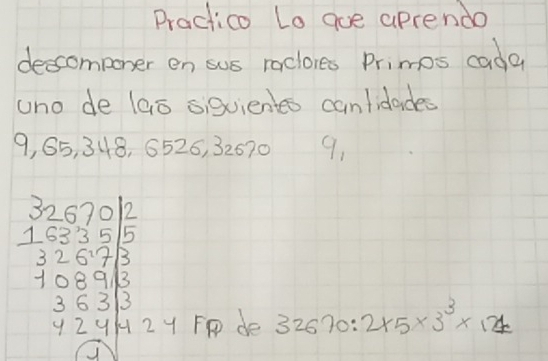 Practico Lo que aprendo
descomponer en sus ractores Primos cada
uno de las siguientes cantidades
9, 65, 348, 6526, 32670 9,
32670|2
16335|5
3267|3
1089|3
363|3
424|424 FP de 32670: 2x5x3³x
1